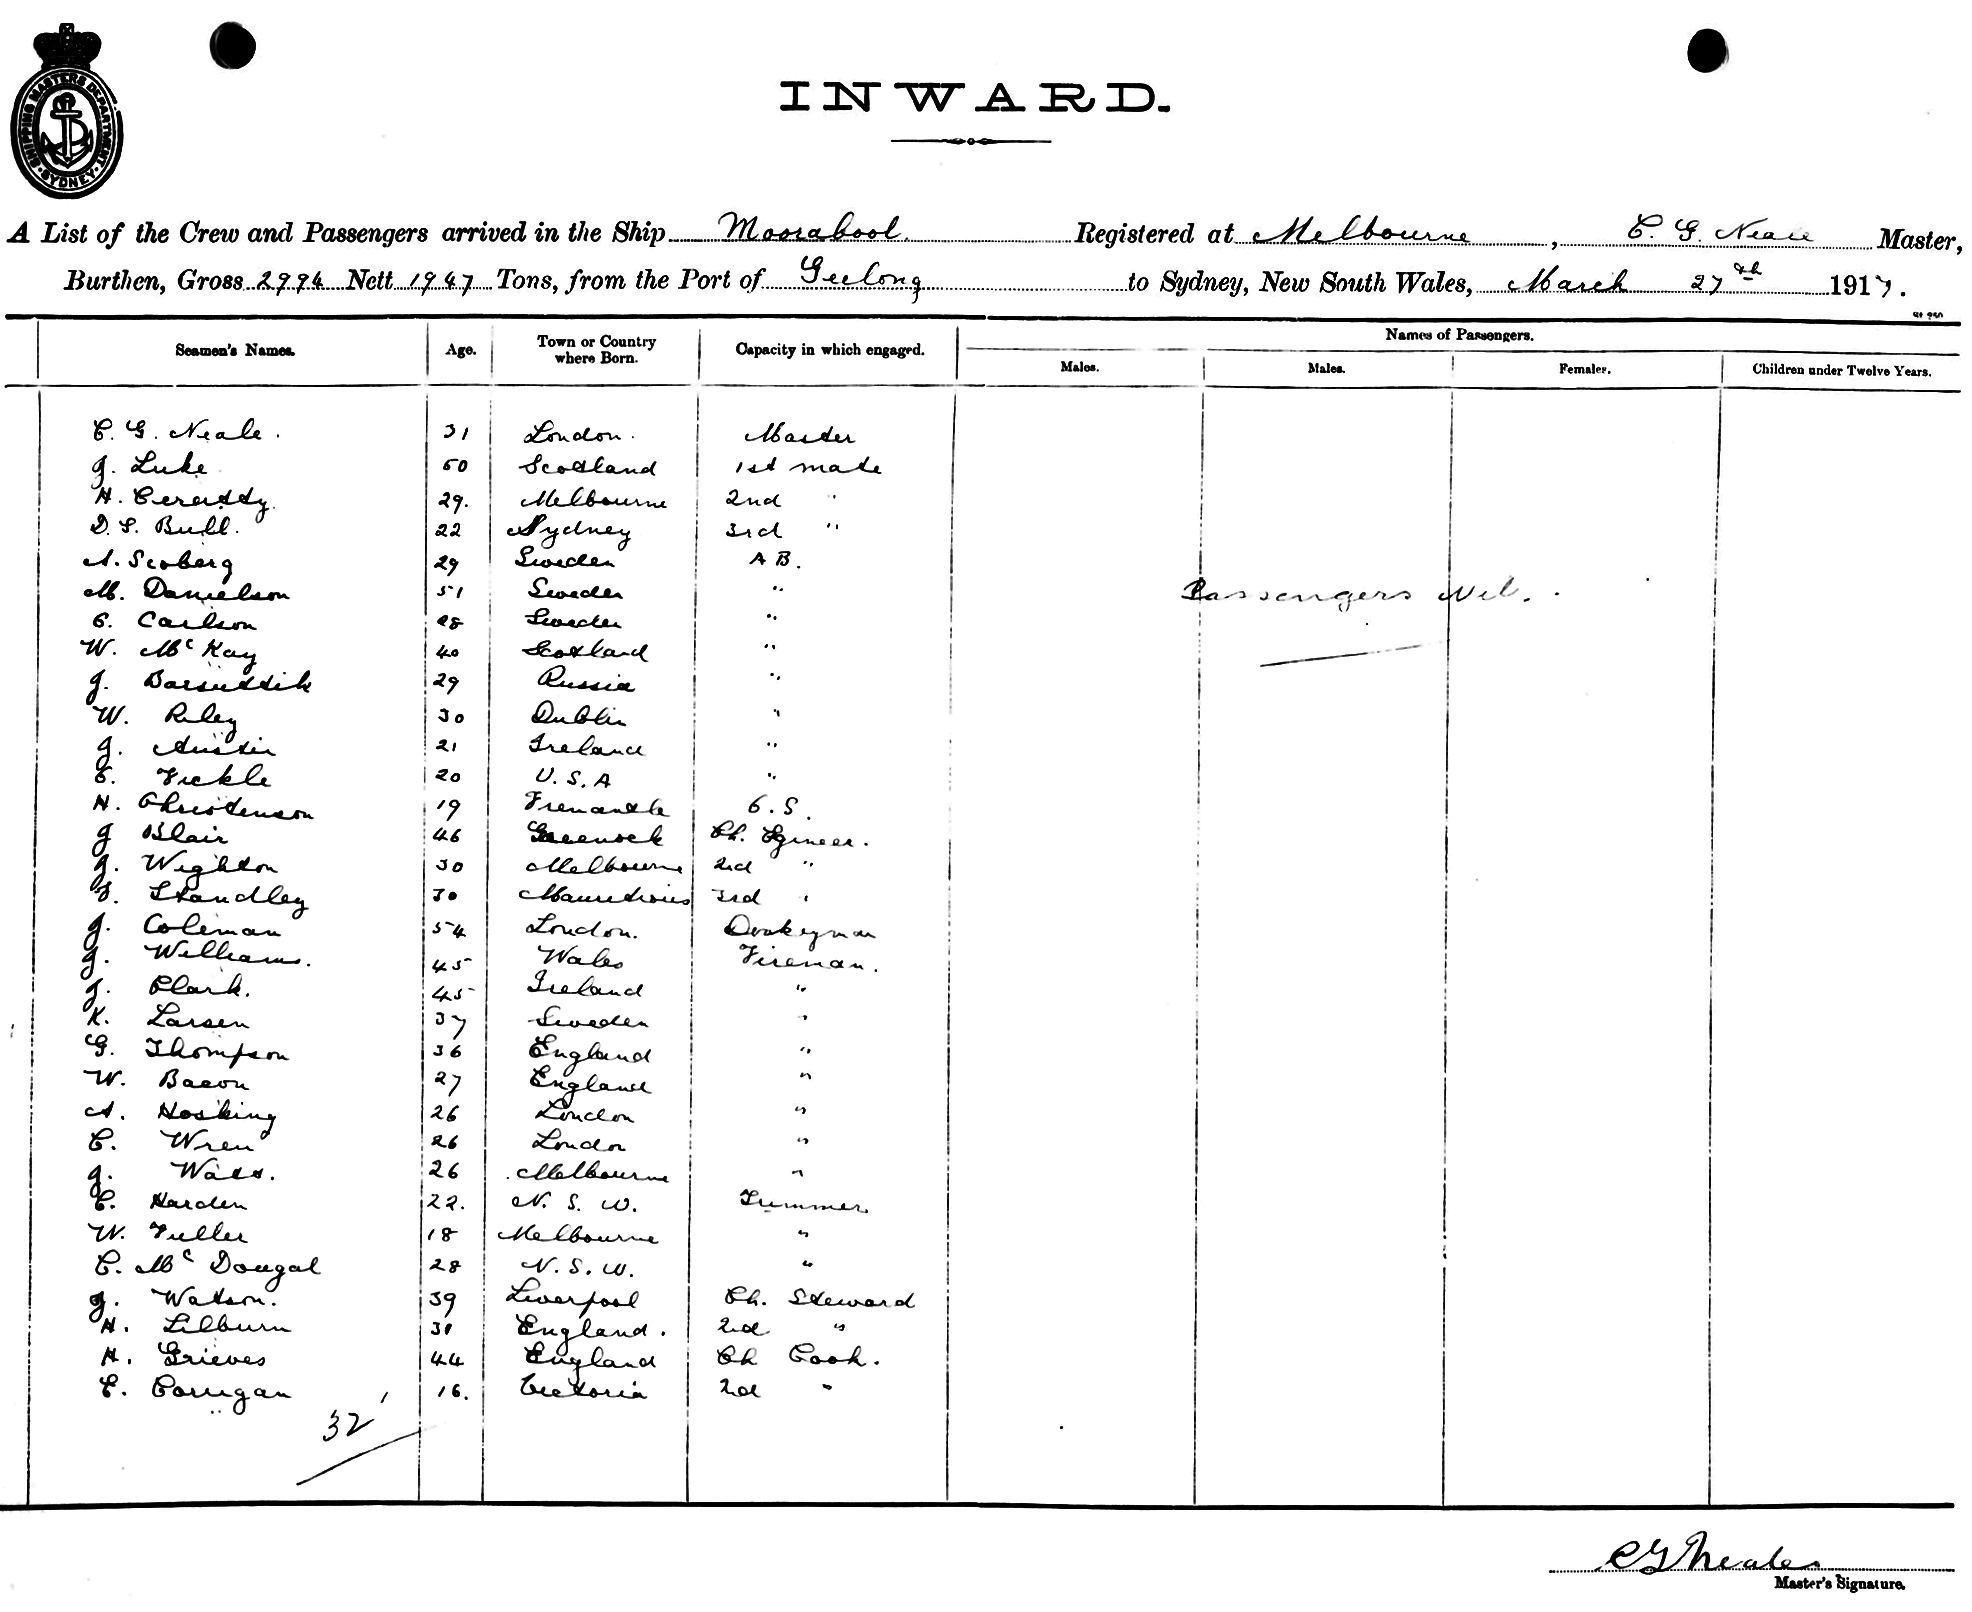 SHIPPING MASTERS DEPARTMENT SYDNEY
INWARD.
A List of the Crew and Passengers arrived in the Ship Moorabool. Registered at Melbourne, C. G. Neale Master,
Burthen, Gross 2994 Nett 1947 Tons, from the Port of Geelong to Sydney, New South Wales, March 27th 1917.
Seamen's Names. Age. Town or Country where Born. Capacity in which engaged. Names of Passengers.
Males. Males. Females. Children under Twelve Years.
C. G. Neale. 31 London. Master
J. Luke 50 Scotland 1st mate
H. 29. Melbourne 2nd "
D. S. Bull. 22 Sydney 3rd "
A. Scoberg 29 Sweden A B.
M. Danielson 51 Sweden "
Passengers Nil.
C. Carlson 28 Sweden "
W. McKay 40 Scotland "
J. 29 Russia "
W. Riley 30 Dublin "
J. Austin 21 Ireland "
C. Fickle 20 U.S.A "
H. Christenson 19 Fremantle O.S.
J Blair 46 Greenock Ch. Egineer.
J. Wighton 30 Melbourne 2nd "
F. Standley 30 3rd "
J. Coleman 54 London. Donkeyman
J. Williams. 45 Wales Fireman.
J. Clark. 45 Ireland "
K. Larsen 37 Sweden "
G. Thompson 36 England "
W. Bacon 27 England "
A. Hosking 26 London "
C. Wren 26 London "
J. Watt. 26 Melbourne "
C. Harden 22. N. S. W. Trimmer
W. Fuller 18 Melbourne "
C. McDougal 28 N. S. W. "
J. Watson. 39 Liverpool Ch. Steward
H. Lilburn 31 England. 2nd "
H. Grieves 44 England Ch Cook.
C. Corrigan 16. Victoria 2nd "
32
C G Neale
Master's Signature.